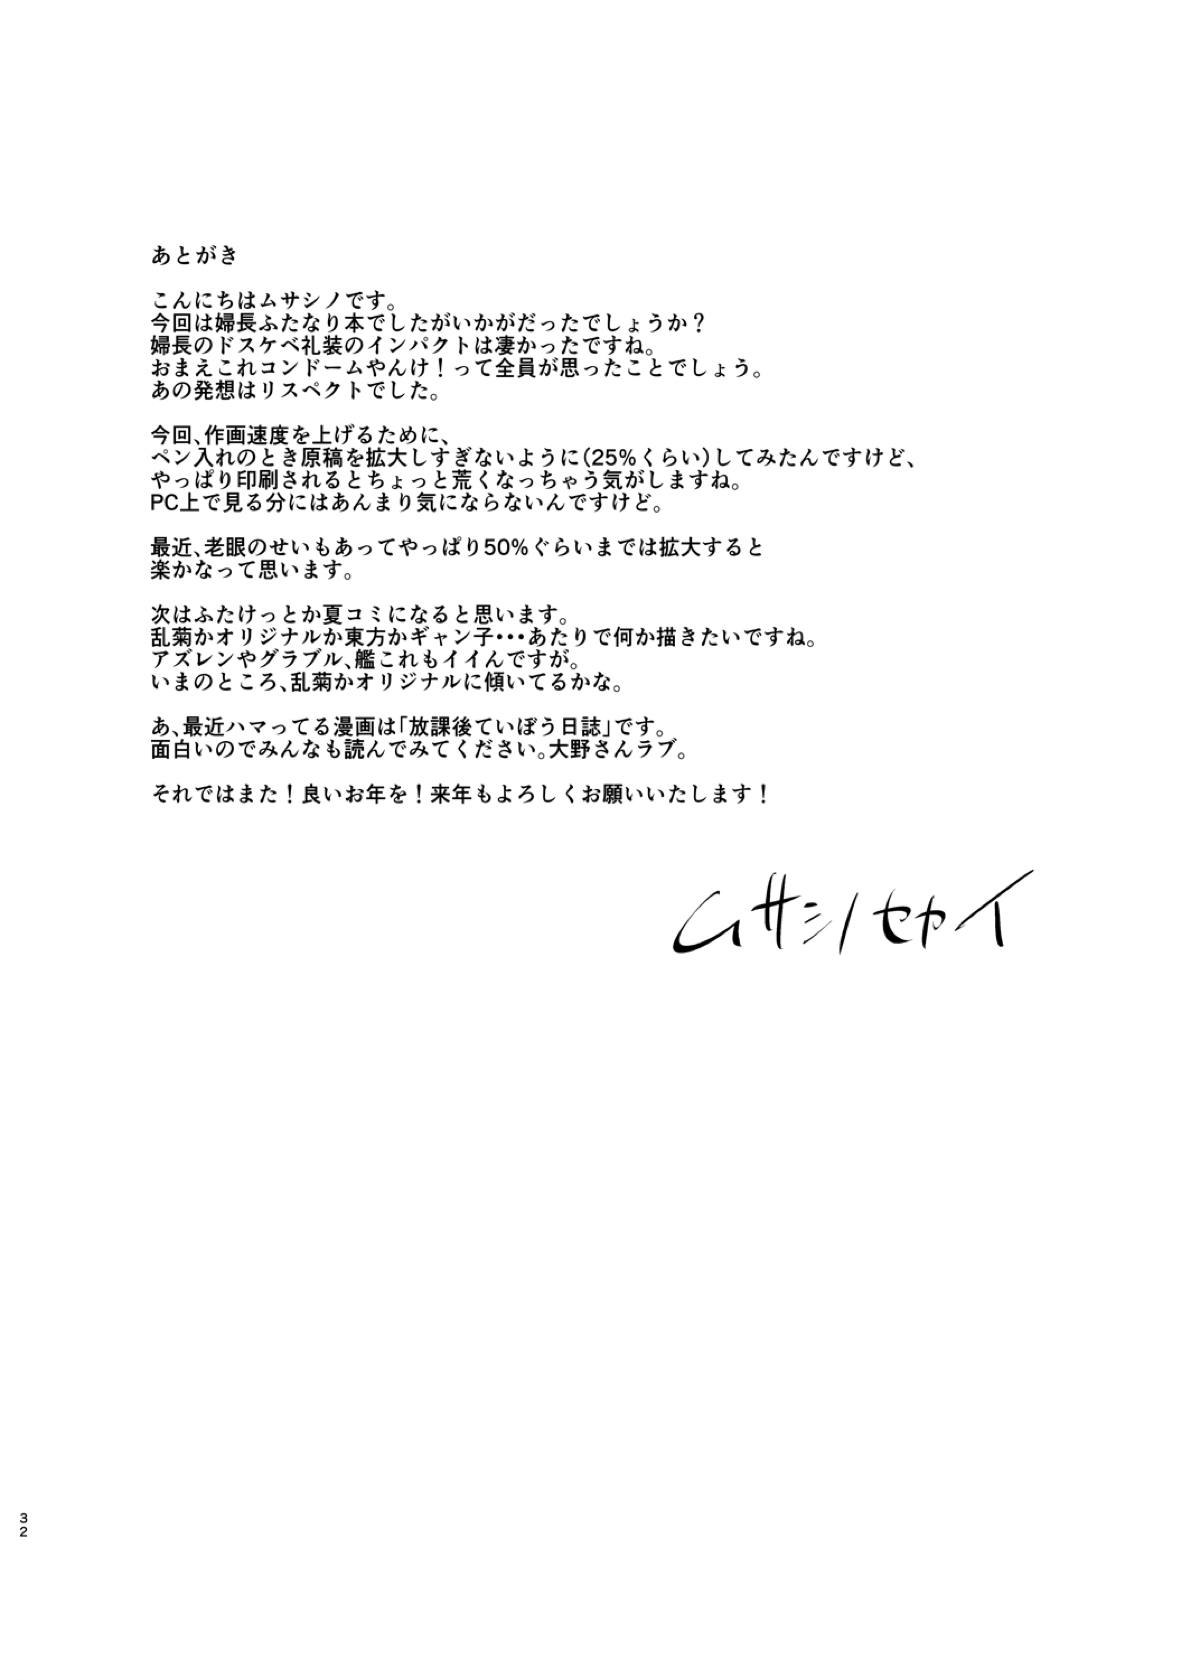 あとがき
こんにちはムサシノです。
今回は婦長ふたなり本でしたがいかがだったでしょうか？
婦長のドスケベ礼装のインパクトは凄かったですね。
おまえこれコンドームやんけ！って全員が思ったことでしょう。
あの発想はリスペクトでした。
今回、作画速度を上げるために、
ペン入れのとき原稿を拡大しすぎないように（25%くらい）してみたんですけど、
やっぱり印刷されるとちょっと荒くなっちゃう気がしますね。
PC上で見る分にはあんまり気にならないんですけど。
最近、老眼のせいもあってやっぱり50%ぐらいまでは拡大すると
楽かなって思います。
次はふたけっとか夏コミになると思います。
乱菊かオリジナルか東方かギャン子･･･あたりで何か描きたいですね。
アズレンやグラブル、艦これもイイんですが。
いまのところ、乱菊かオリジナルに傾いてるかな。
あ、最近ハマってる漫画は「放課後ていぼう日誌」です。
面白いのでみんなも読んでみてください。大野さんラブ。
それではまた！良いお年を！来年もよろしくお願いいたします！
ムサシノセカイ
32